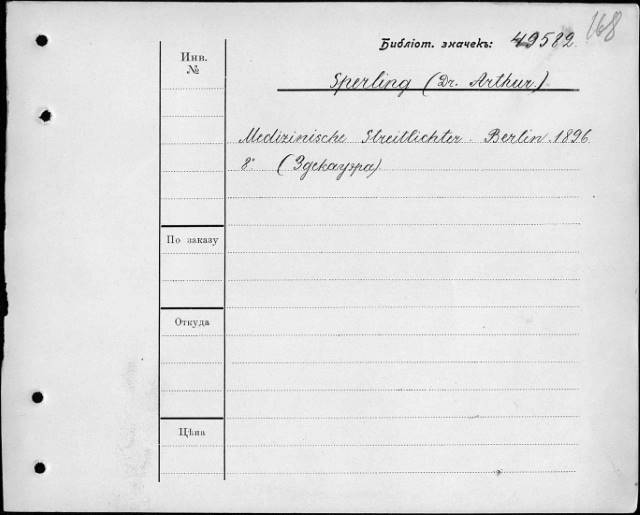 168
Библіот. значекъ: 49582.
Инв.
№
Sperling (Dr. Arthur.)
Medizinische Streitlichter. Berlin. 1896
8° (Здекауэра).
По заказу
Откуда
Цѣна